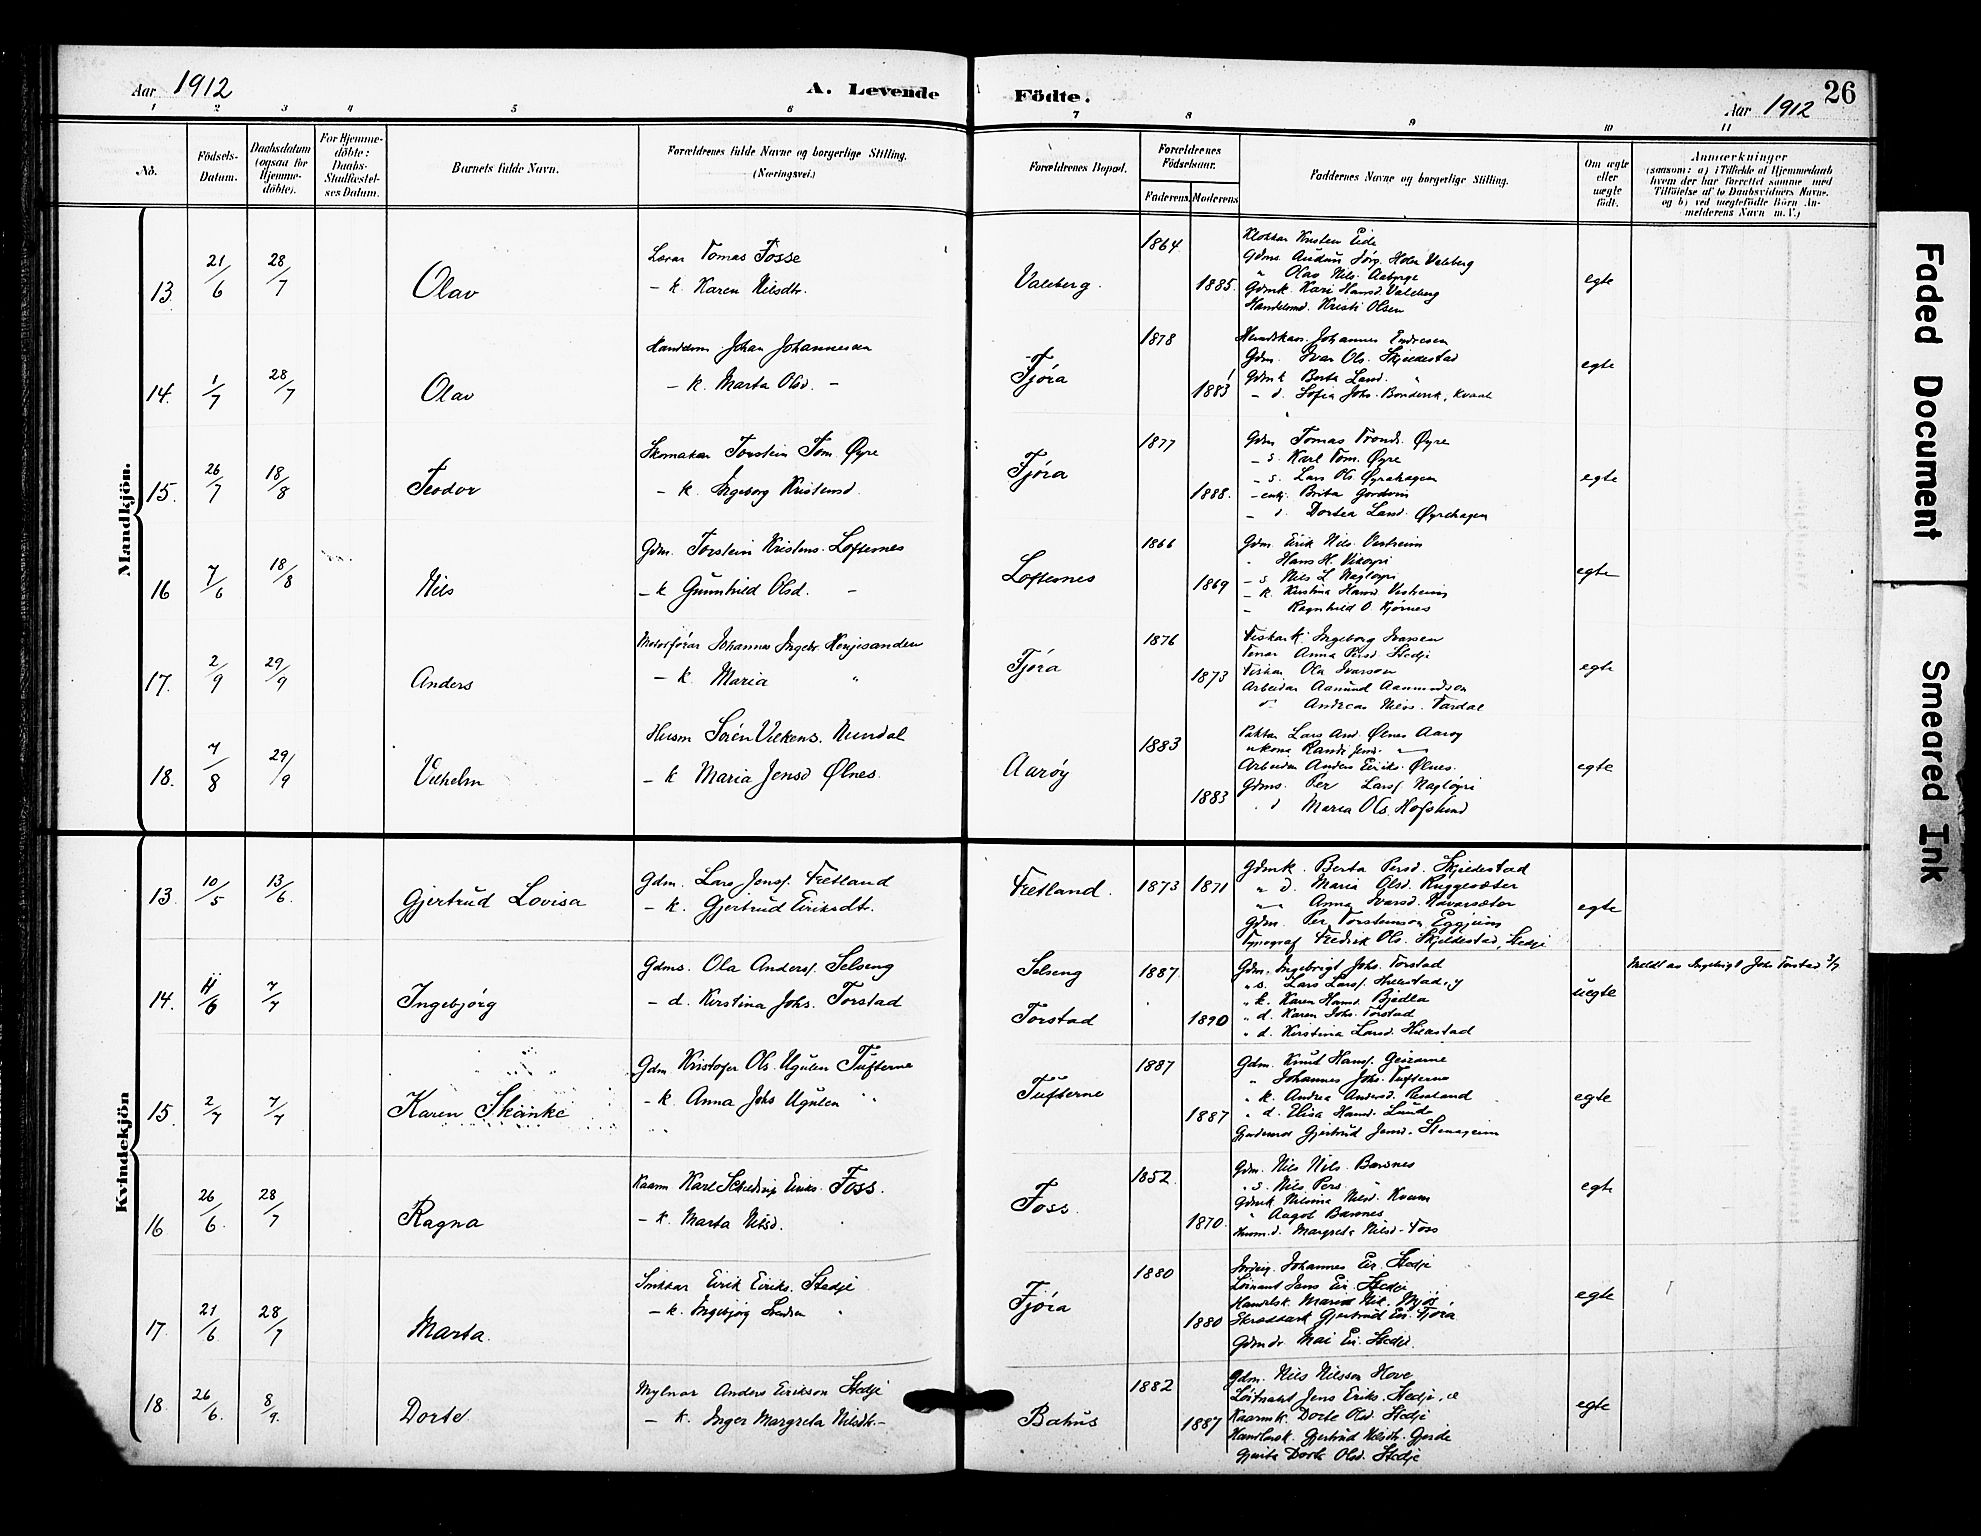 Aar 1912
A. Levende Födte.
Aar 1912
26
1 2 3 4 5 6 7 8 9 10 11
No.
Födsels-Datum.
Daabsdatum (ogsaa for Hjemme-döbte).
For Hjemme-döbte: Daabs-Stadfæstel-ses Datum.
Barnets fulde Navn.
Forældrenes fulde Navne og borgerlige Stilling.
(Næringsvei.)
Forældrenes Bopæl.
Forældrenes Födselsaar.
Faderens Moderens
Faddernes Navne og borgerlige Stilling.
Om ægte eller uægte født.
Anmærkninger
(saasom: a) i Tilfælde af Hjemmedaab
hvem der har forrettet samme med
Tilföielse af to Daabsvidners Navne.
og b) ved uægtefödte Börn An-
melderens Navn m. V.)
Mandkjön.
13. 21/6 28/7 Olav
Lærar Tomas Fosse
– k. Karen Nilsdtr.
Valeberg. 1864 1885.
Klokkar Kristen Eide
Gdms. Audun Jørg. Holen Valeberg
" Olav Nils. Aaberge
Gdmk. Kari Hansd. Valeberg
Handelsmd. Kristi Olsen
egte
14. 1/7 28/7 Olav
Handelsm. Johan Johannessen
– k. Marta Olsd. –
Fjøra 1878 1883
Johannes Endresen
Gdm. Ivar Ols. Skjeldestad
Gdmk Berta Land.
– d. Sofia Johs. Bondevik, Kvaale
egte
15. 26/7 18/8 Teodor
Skomakar Torstein Tom. Øyre
– k. Ingeborg Kristensd.
Fjøra 1877 1888.
Gdm Tomas Tronds. Øyre
– s. Karl Tom. Øyre
– s. Lars Ols. Øyrehagen
– enkj. Brita Gordvin
– d. Dortea Land. Øyrehagen
egte
16 7/6 18/8 Nils
Gdm. Torstein Kristens. Loftesnes
– k Gunnhild Olsd. –
Loftesnes 1866 1869
Gdm. Eirik Nils. Vestheim
Hans H. Vikøyri
– s. Nils L Nagløyri
– k. Kristina Hansd. Vestheim
– Ragnhild O. Kjørnes
egte
17. 2/9 29/9 Anders
Motorførar Johannes Ingebr. Henjesanden
– k Maria "
Fjøra 1876 1873
Fiskark. Ingeborg Ivarsen
Tenar Anna Persd. Stedje
Fiskar Ola Ivarson
Arbeidar Aamund Aamundson
Andreas Niels. Tardal
egte
18. 7/8 29/9 Vilhelm
Husm Søren Vilkens. Nundal
– k Maria Jensd Ølnes.
Aarøy 1883 1883
Paktar Lars And. Ølnes Aarøy
Randi Jens.
Arbeidar Anders Eiriks. Ølnes.
Gdms. Per Larss. Nagløyri
d Maria Ols. Hofslund
egte
Kvindekjön
13. 10/5 13/6. Gjertrud Lovisa
Gdm. Lars Jenss. Fretland
– k. Gjertrud Eiriksdtr.
Fretland. 1873 1871
Gdmk. Berta Persd. Skjeldestad
" d. Maria Olsd. Ruggesæter
Anna Ivarsd. Navarsæter
Gdm. Per Torsteinson Eggjum
Typograf Fredrik Ols. Skjeldestad, Stedje
egte
14. 11/6 7/7 Ingebjørg
Gdms. Ola Anderss. Selseng
– d. Kirstina Johs. Torstad
Selseng
Torstad
1887. 1890
Gdm. Ingebrigt Johs. Torstad
" s. Lars Larss. Hillestad, y
" k. Karen Hansd. Bjedla
" d. Karen Johs. Torstad
" d. Kirstina Larsd. Hillestad
uegte
Meldt av Ingebrigt Johs Torstad 3/7
15. 2/7 7/7 Karen Skanke
Gdm Kristofer Ols. Ugulen Tufterne
– k. Anna Johs Ugulen "
Tufterne 1887 1887
Gdm. Knut Hanss. Geisrame
" Johannes Johs. Tufterne
" k. Andrea Andersd.
" d. Elisa Hansd. Lunde
Gjertrud Jensd. Stenageim
egte
16 26/6. 28/7 Ragna
Kaarm Karl Eiriks. Foss.
– k. Marta Nilsd.
Foss. 1852. 1870.
Gdm. Nils Nils. Barsnes
" s. Nils Pers. "
Gdmk Nilsina Nilsd. Kvam
" Aagot Barsnes
Husm.d. Margreta Nilsd. Foss
egte
17. 21/6 28/7 Marta.
Snikkar Eirik Eiriks. Stedje
– k. Ingebjørg "
Fjøra 1880 1880
Johannes Eir. Stedje
Løitnant Jens Eir. Stedje
Handelsk. Maria Nil. Mjøs
Skræddark Gjertrud Eir. Fjøra
Gdmdr. Mai Eir. Stedje.
egte
18. 26/6. 8/9. Dorte
Mylnar Anders Eirikson Stedje
– k. Inger Margreta Nilsdtr. –
Bahus 1882 1887
Gdm. Nils Nilsson Hove
Løitnant Jens Eiriks. Stedje
Kaarmk. Dorte Olsd. Stedje
Handlarsk. Gjertrud Nilsdtr. Gjerde
Gjenta Dorte Olsd. Stedje
egte
Faded Document
Smeared Ink